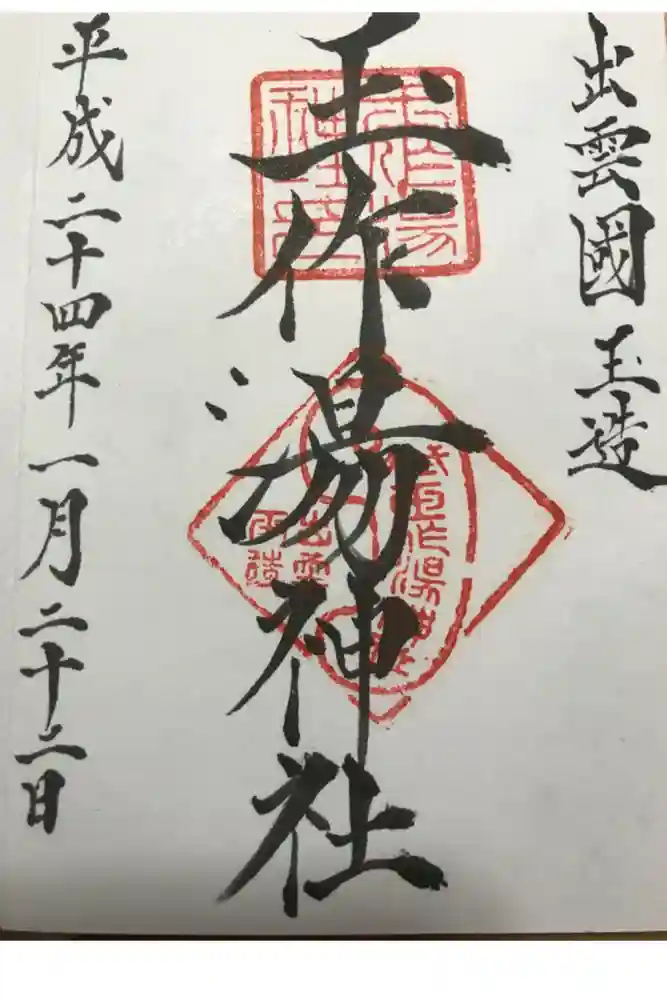 出雲國玉造
玉作湯神社
平成二十四年一月二十二日
玉作湯
神社
出雲
玉造